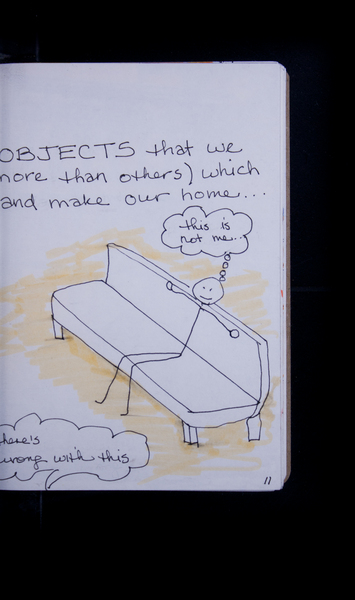 OBJECTS that we
more than others) which
and make our home...
this is
not me...
there's
wrong with this
11